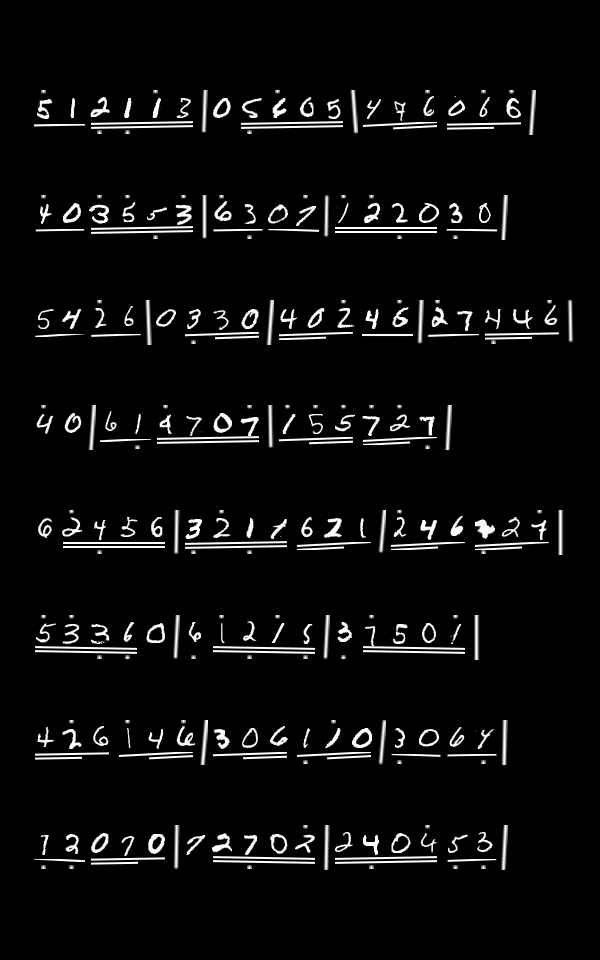 5 1 2 1 1 3 | 0 5 6 0 5 | 4 7 6 0 6 6 |
4 0 3 5 5 3 | 6 3 0 7 | 1 2 2 0 3 0 |
5 4 2 6 | 0 3 3 0 | 4 0 2 4 6 | 2 7 4 4 6 |
4 0 | 6 1 4 7 0 7 | 1 5 5 7 2 7 |
6 2 4 5 6 | 3 2 1 7 6 2 1 | 2 4 6 2 7 |
5 3 3 6 0 | 6 1 2 1 5 | 3 7 5 0 1 |
4 2 6 1 4 6 | 3 0 6 1 1 0 | 3 0 6 4 |
1 2 0 7 0 | 7 2 7 0 2 | 2 4 0 4 5 3 |